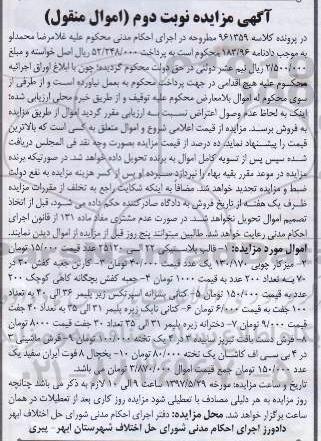 آگهی مزایده نوبت دوم (اموال منقول)
در پرونده کلاسه 961359 مطروحه در اجرای احکام مدنی محکوم علیه غلامرضا محمدلو
به موجب دادنامه 183/96 محکوم است به پرداخت 52/248/000 ریال اصل خواسته و مبلغ
2/500/000 ریال نیم عشر دولتی در حق دولت محکوم گردیده؛ چون با ابلاغ اوراق اجرائیه
محکوم علیه هیچ اقدامی در جهت پرداخت محکوم به بعمل نیاورده است و از طرفی از
سوی محکوم له اموال بلامعارض محکوم علیه توقیف و از طریق خبره محلی ارزیابی شده؛
اینک به لحاظ عدم وصول اعتراض نسبت به ارزیابی مقرر گردید اموال از طریق مزایده
به فروش برسند. مزایده از قیمت اعلامی شروع و اموال متعلق به کسی است که بالاترین
قیمت را پیشنهاد نماید. ده درصد از قیمت مزایده بصورت وجه نقد فی المجلس دریافت
شده سپس پس از تسویه کامل اموال به برنده تحویل داده خواهد شد. در صورتیکه برنده
مزایده در موعد مقرر بقیه بهاء را نپردازد سپرده او پس از کسر هزینه مزایده به نفع دولت
ضبط و مزایده تجدید خواهد شد. مضافا به اینکه شکایت راجع به تخلف از مقررات مزایده
ظرف یک هفته از تاریخ فروش به دادگاه صادر کننده حکم داده می شود، قبل از اتخاذ
تصمیم اموال تحویل نخواهد شد. در صورت عدم مشتری مفاد ماده 131 از قانون اجرای
احکام مدنی رعایت خواهد شد. طالبین میتوانند پنج روز قبل از مزایده از اموال دیدن نمایند.
اموال مورد مزایده: 1- قالب پلاستیک 22 الی 25 120 عدد قیمت 15/000 تومان
2- میز کار چوبی 170/130 یک عدد قیمت 30/000 تومان 3- کارتن جعبه کفش 30 در
70 به تعداد 200 عدد به قیمت 1000 تومان 4- جعبه کفش بچگانه کاهی کوچک 200
عدد به قیمت 150/000 تومان 5- کتانی پسرانه اسپرتکس زیر پلیمر 36 الی 40 به تعداد
100 جفت به قیمت 6/000 تومان 6- کتانی نایک زیره پلیمر 31 الی 35 به تعداد 40 جفت
قیمت 9/000 تومان 7- دخترانه زیره پلیمر 31 الی 35 تعداد 30 جفت قیمت 8000 تومان
8- فرش دست بافت تبریز ساییده 3 در 2 یک تخته 100/000 تومان 9- فرش ماشینی 2
در 3 بی سی اف کاشان یک تخته 80/000 تومان 10- یخچال 8 فوت ایران سفید یک
عدد 150/000 تومان جمع قیمت اموال 3/870/000 تومان می باشد.
تاریخ و ساعت مزایده: مورخه 1397/5/29 ساعت 9 الی 10 لازم به ذکر می باشد چنانچه
روز مزایده به هر دلیلی مصادف با تعطیلی شود مزایده روز کاری بعد از تعطیلات در همان
ساعت برگزار خواهد شد. محل مزایده: دفتر اجرای احکام مدنی شورای حل اختلاف ابهر
دادورز اجرای احکام مدنی شورای حل اختلاف شهرستان ابهر- بیری